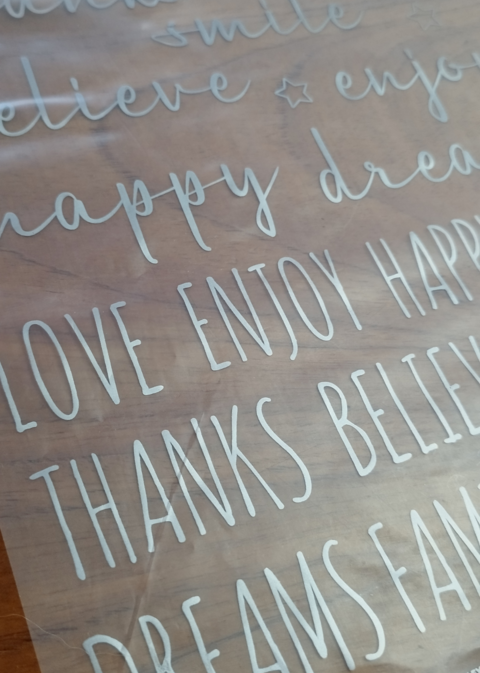 smile
elieve ☆ enjo
happy drea
LOVE ENJOY HAPP
THANKS BELIEV
DREAMS FAM